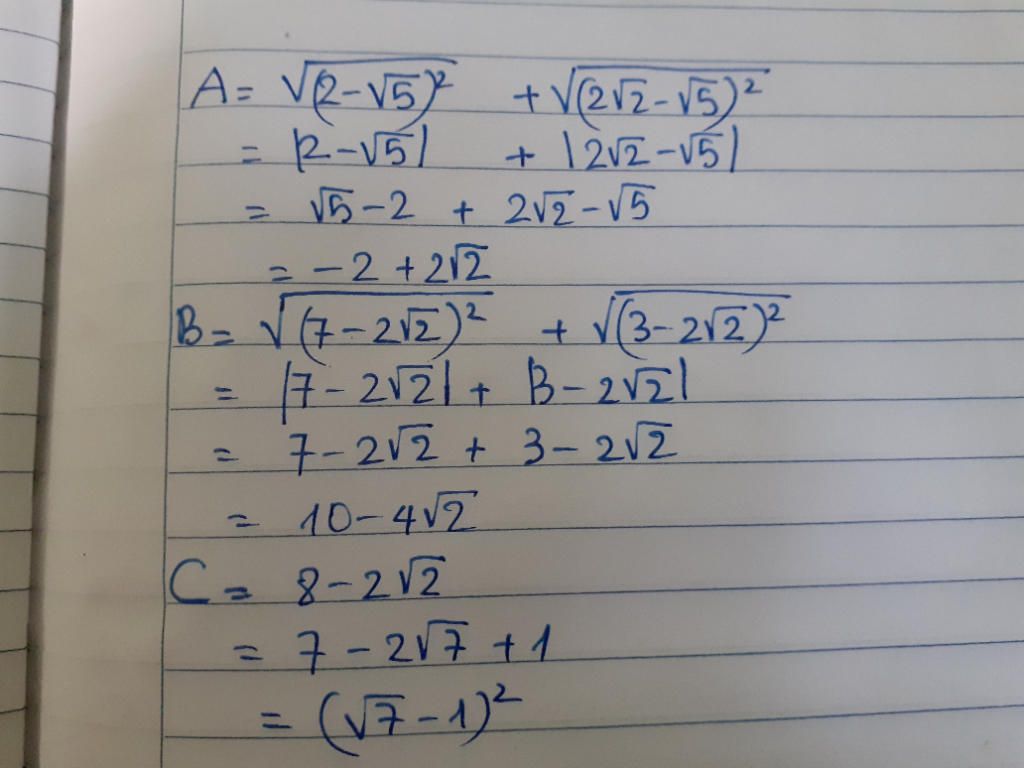 A = √(2-√5)² + √(2√2-√5)²
= |2-√5| + |2√2-√5|
= √5-2 + 2√2-√5
= -2+2√2
B = √(7-2√2)² + √(3-2√2)²
= |7-2√2| + |3-2√2|
= 7-2√2 + 3-2√2
= 10-4√2
C = 8-2√2
= 7-2√7+1
= (√7-1)²